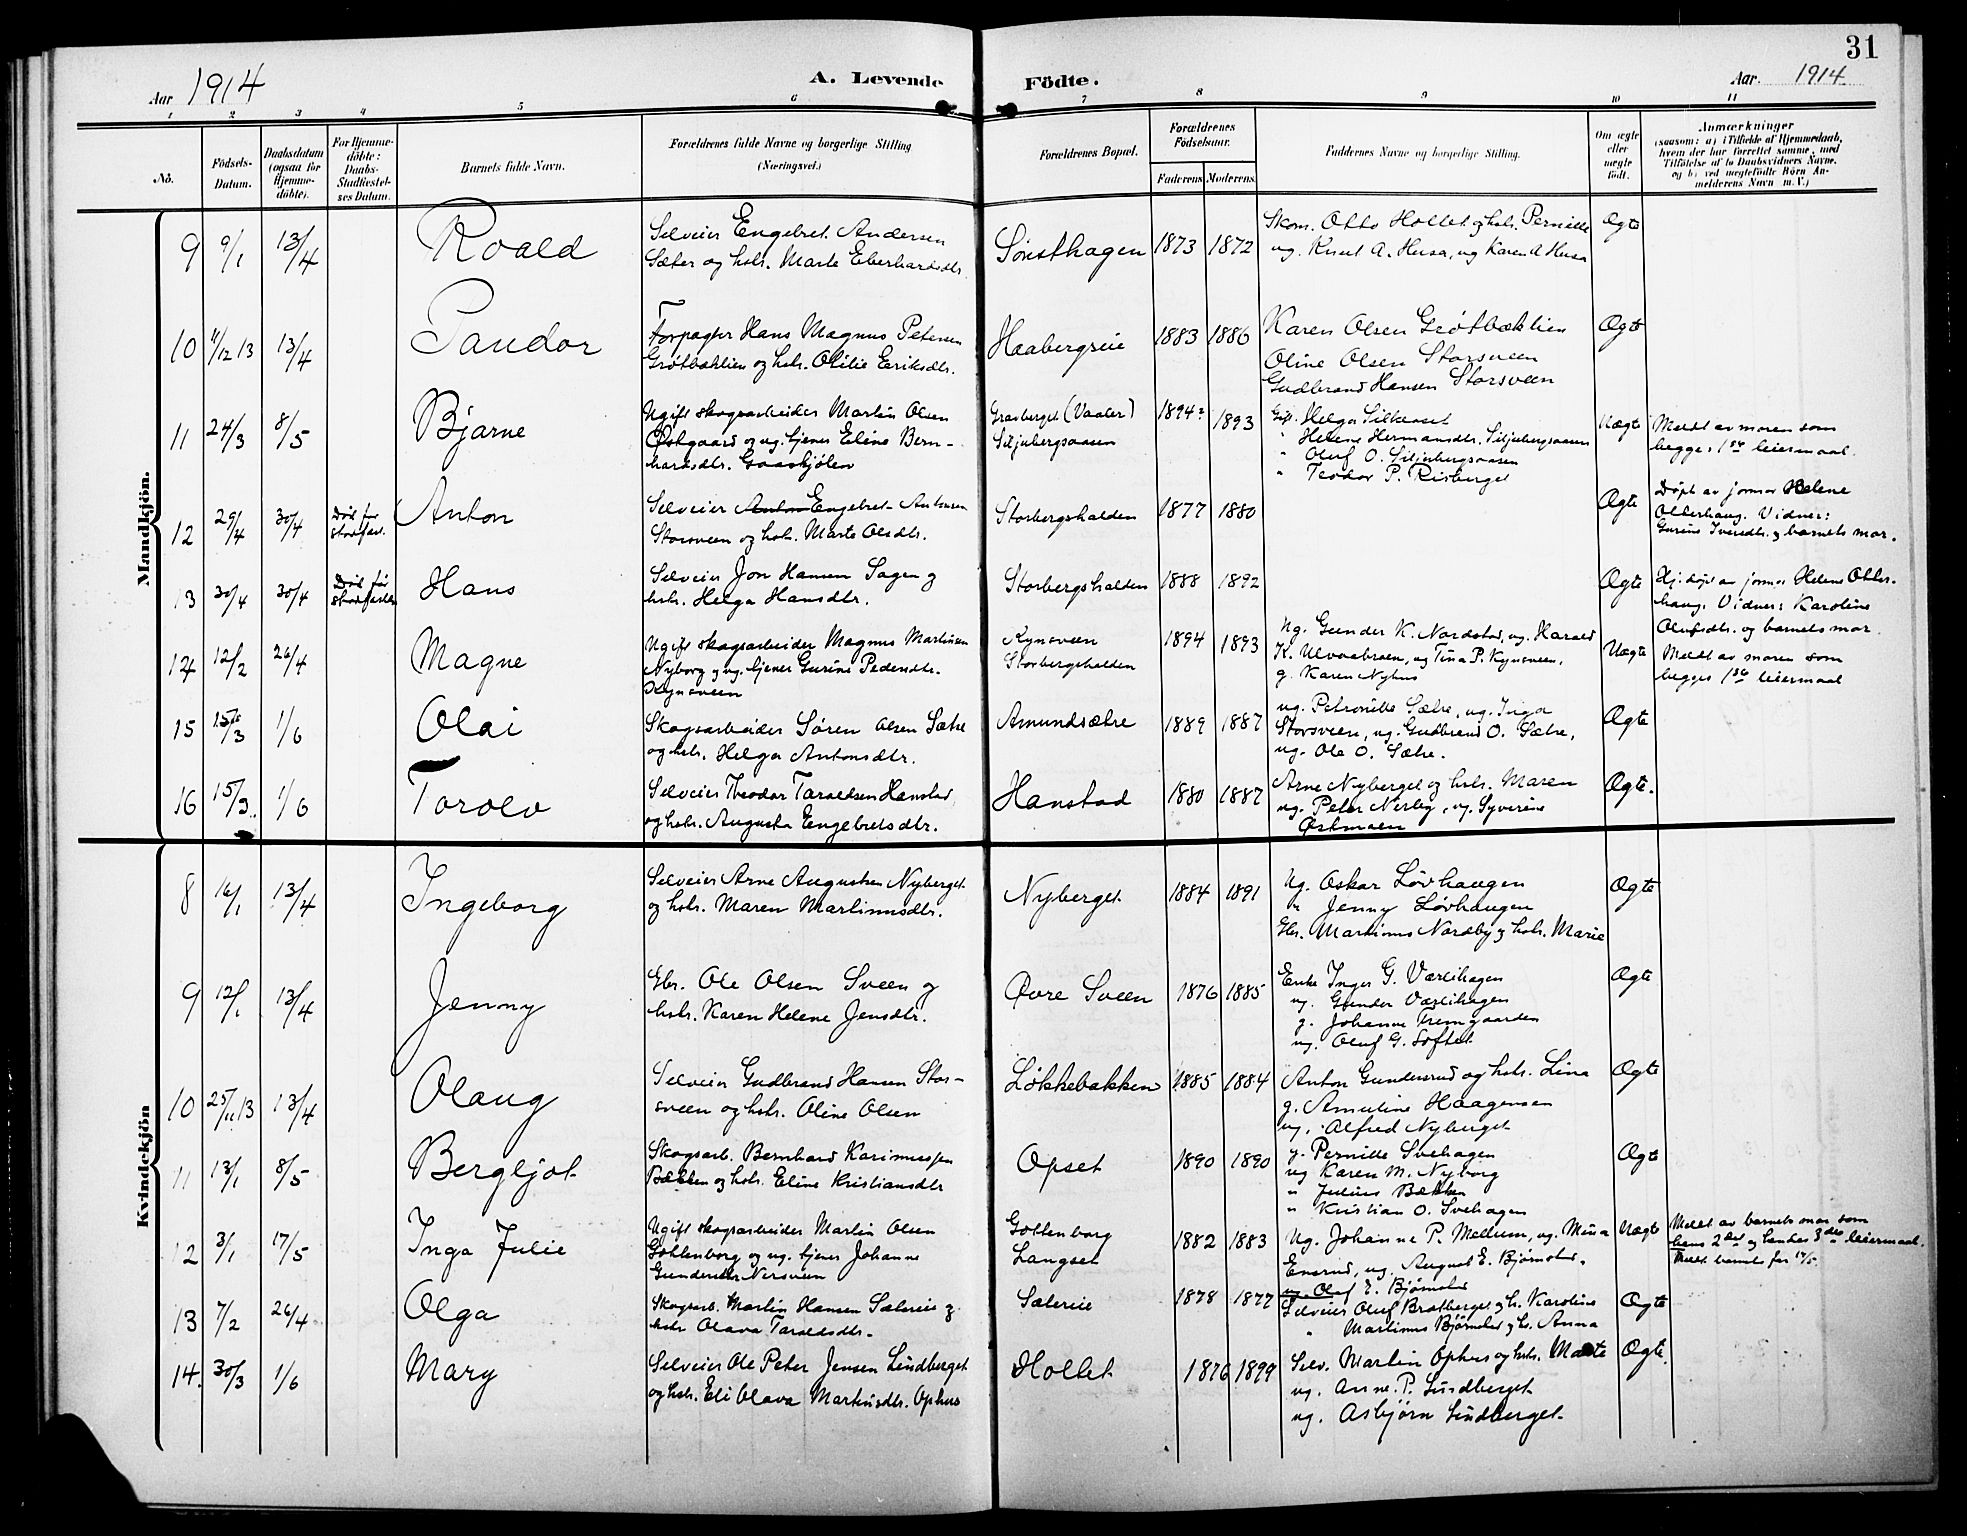 31
Aar 1914
A. Levende
Födte.
Aar. 1914
1 2 3 4 5 6 7 8 9 10 11
No.
Födsels-Datum.
Daabsdatum (ogsaa for Hjemme-döbte).
For Hjemme-döbte: Daabs-Stadfæstel-ses Datum.
Barnets fulde Navn.
Forældrenes fulde Navne og borgerlige Stilling (Næringsvei.)
Forældrenes Bopæl.
Forældrenes Födselsaar.
Faderens Moderens
Faddernes Navne og borgerlige Stilling.
Om ægte eller uægte födt.
Anmærkninger
(saasom: a) i Tilfælde af Hjemmedaab, hvem der har forrettet samme, med Tilföielse af to Daabsvidners Navne, og b) ved uægtefödte Börn Anmelderens Navn m. V.)
Mandkjön.
9 9/1 13/4 Roald
Selveier Engebret Andersen
Sæter og hstr. Marte Eberhardsdtr.
Sönsthagen 1873 1872
Skom. Otto Hollet og hstr. Pernille
ug. Knut A. Husa, ug Karen A Husa
Ægte
10 11/12 13 13/4 Pandor
Forpagter Hans Magnus Petersen
Grøtbæklien og hstr. Otilie Eriksdtr.
Haabergseie 1883 1886
Karen Olsen Grøtbæklien
Oline Olsen Storsveen
Gudbrand Hansen Storsveen
Ægte
11 24/3 8/5 Bjarne
Ugift skogsarbeider Martin Olsen
Østgaard og ug. tjener Eline Bern-
hardsdtr. Graaskjølen
Grasberget (Vaaler)
Siljubergsaasen
1894? 1893
Helga Silkeset
" Helene Hermansdtr. Siljubergsaasen
" Oluf O. Siljubergsaasen
" Teodor P. Risberget
Uægte
Meldt av moren som
begges 1ste leiermaal.
12 29/4 30/4 Død før stadfæst.
Anton
Selveier Anton Engebret Antonsen
Storsveen og hstr. Marte Olsdtr.
Storbergshalden 1877 1880
Ægte
Døpt av jormor Helene
Otterhaug. Vidner:
Gurine Iversdtr. og barnets mor.
13 30/4 30/4 Død før stadfæstelse
Hans
Selveier Jon Hansen Sagen og
hstr. Helga Hansdtr.
Storbergshalden 1888 1892
Ægte
Hj. døpt av jormor Helene Otter-
haug. Vidner: Karoline
Olufsdtr. og barnets mor.
14 12/2 26/4 Magne
Ugift skogsarbeider Magnus Martinsen
Nyborg og ug. tjener Gurine Pedersdtr.
Kynsveen
Kynsveen
Storbergshalden
1894 1893
Ug. Gunder K. Nordstad, ug. Harald
K. Ulvaabroen, ug Tina P. Kynsveen,
g. Karen Nyhus
Uægte
Meldt av moren som
begges 1ste leiermaal
15 15/3 1/6 Olai
Skogsarbeider Søren Olsen Sætre
og hstr. Helga Antonsdtr.
Amundsætre 1889 1887
ug. Petronille Sætre, ug. Inga
Storsveen, ug. Gudbrand O. Sætre,
ug. Ole O. Sætre.
Ægte
16 15/3 1/6 Torolv
Selveier Theodor Taraldsen Hanstad
og hstr. Augusta Engebretsdtr.
Hanstad 1880 1887
Arne Nyberget og hstr. Maren
ug. Peter Nerby, ug. Syverine
Østmoen
Ægte.
Kvindekjön
8 16/1 13/4 Ingeborg
Selveier Arne Augustsen Nyberget
og hstr. Maren Martinusdtr.
Nyberget 1884 1891
Ug. Oskar Løvhaugen
" Jenny Løvhaugen
Gbr. Martinus Nordby og hstr. Marie
Ægte
9 12/1 13/4 Jenny
Gbr. Ole Olsen Sveen og
hstr. Karen Helene Jensdtr.
Øvre Sveen 1876 1885
Enke Inger G. Værlihagen
ug. Gunder Værlihagen
g. Johanne Fremgaarden
ug. Oluf G. Loftet
Ægte
10 25/11 13 13/4 Olaug
Selveier Gudbrand Hansen Stor-
sveen og hstr. Oline Olsen
Løkkebakken 1885 1884
Anton Gundersrud og hstr. Lina
g. Amutine Haagensen
ug. Alfred Nyberget
Ægte
11 13/1 8/5 Bergljot
Skogsarb. Bernhard Karinussen
Bækken og hstr. Eline Kristiansdtr
Opset 1890 1890
g. Pernille Svehagen
ug Karen M. Nyborg
" Julius Bækken
" Kristian O. Svehagen
Ægte
12 3/1 17/5 Inga Julie
Ugift skogsarbeider Martin Olsen
Gøttenborg og ug. tjener Johanne
Gundersdtr Nersveen
Gøttenborg
Langset
1882 1883
Ug. Johanne P. Mellum, ug. Mina
Ensrud, ug. August E. Bjørnstad.
ug. Olaf E. Bjørnstad
Uægte
Meldt av barnets mor som
hans 2det og hendes 3dje leiermaal.
Meldt barnet før 17/5.
13 7/2 26/4 Olga
Skogsarb. Martin Hansen Sætereie og
hstr Olava Taraldsdtr.
Sætereie 1878 1877
Selveier Oluf Bratberget og h. Karoline
" Martinus Bjørnstad og h. Anna
Ægte
14. 30/3 1/6 Mary
Selveier Ole Peter Jensen Lindberget
og hstr. Eli Olava Martinsdtr. Ophus
Hollet 1876 1899
Selv. Martin Ophus og hstr. Marte
ug. Anne. P. Lindberget
ug. Asbjørn Lindberget
Ægte.